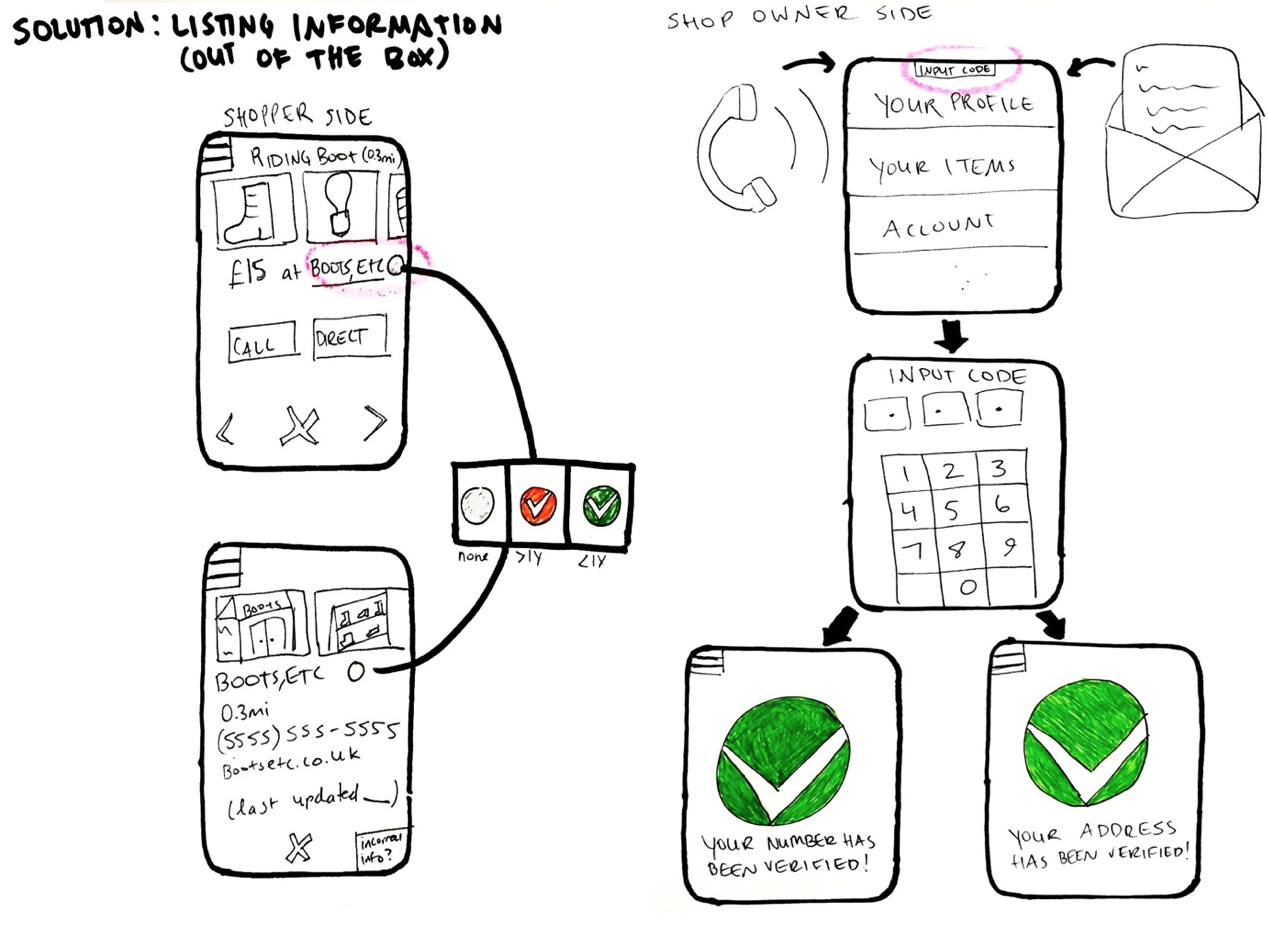 SOLUTION: LISTING INFORMATION
(OUT OF THE BOX)
SHOPPER SIDE
RIDING BOOT (0.3mi)
£15 at BOOTS, ETC
CALL
DIRECT
none
>1Y
<1Y
BOOTS
BOOTS, ETC
0.3mi
(5555) 555-5555
Bootsetc.co.uk
(last updated __)
incorrect
info?
SHOP OWNER SIDE
INPUT CODE
YOUR PROFILE
YOUR ITEMS
ACCOUNT
INPUT CODE
1 2 3
4 5 6
7 8 9
0
YOUR NUMBER HAS
BEEN VERIFIED!
YOUR ADDRESS
HAS BEEN VERIFIED!